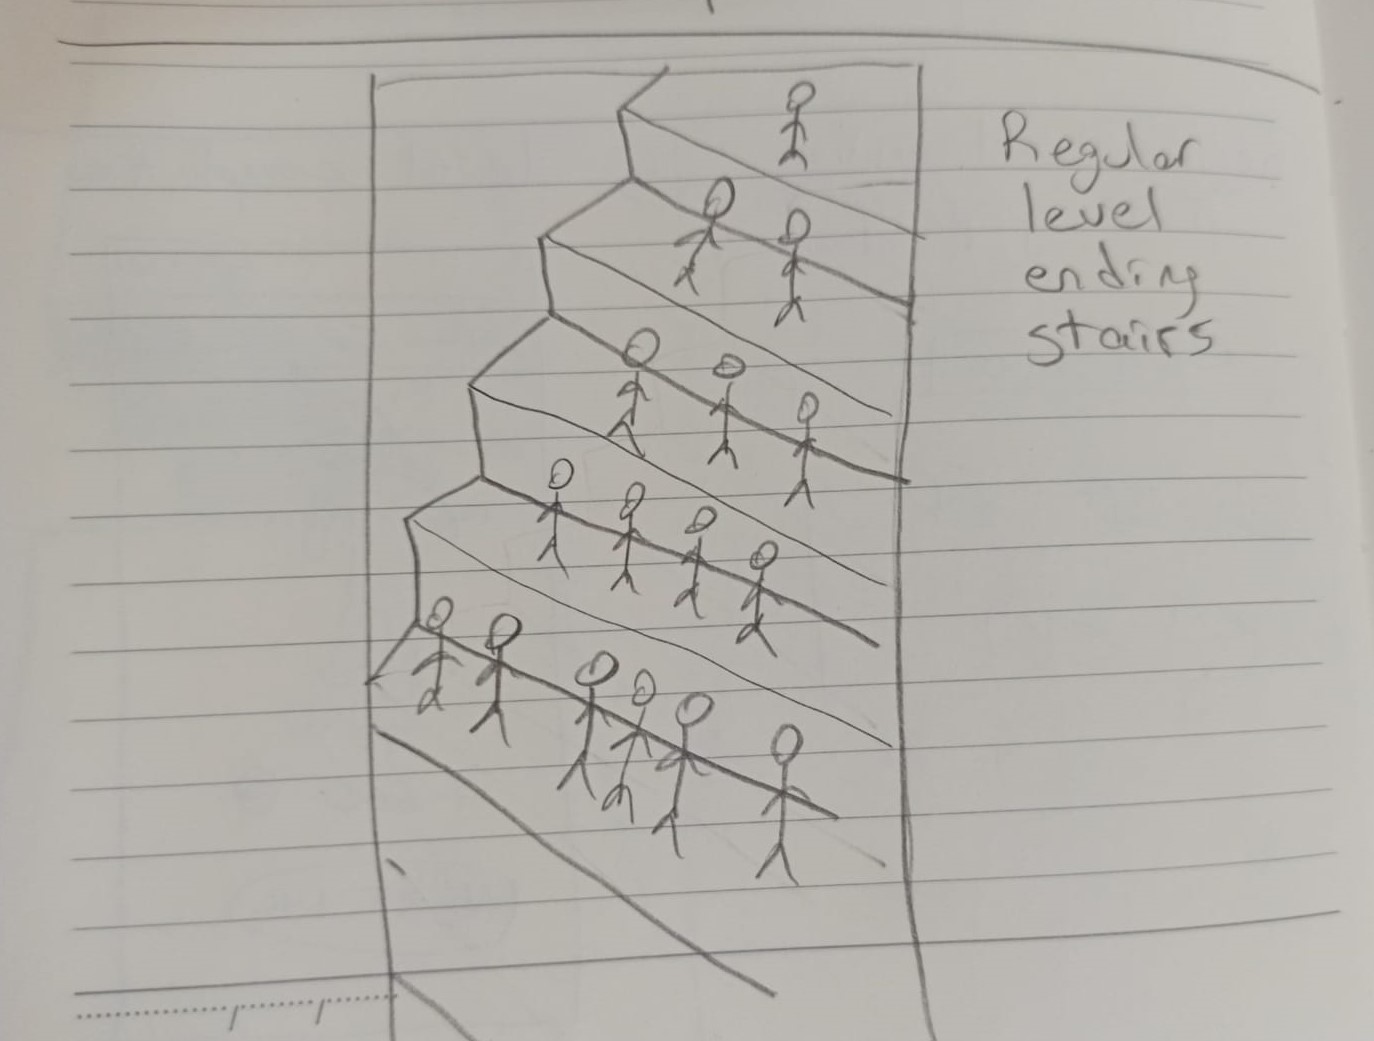 Regular
level
ending
stairs